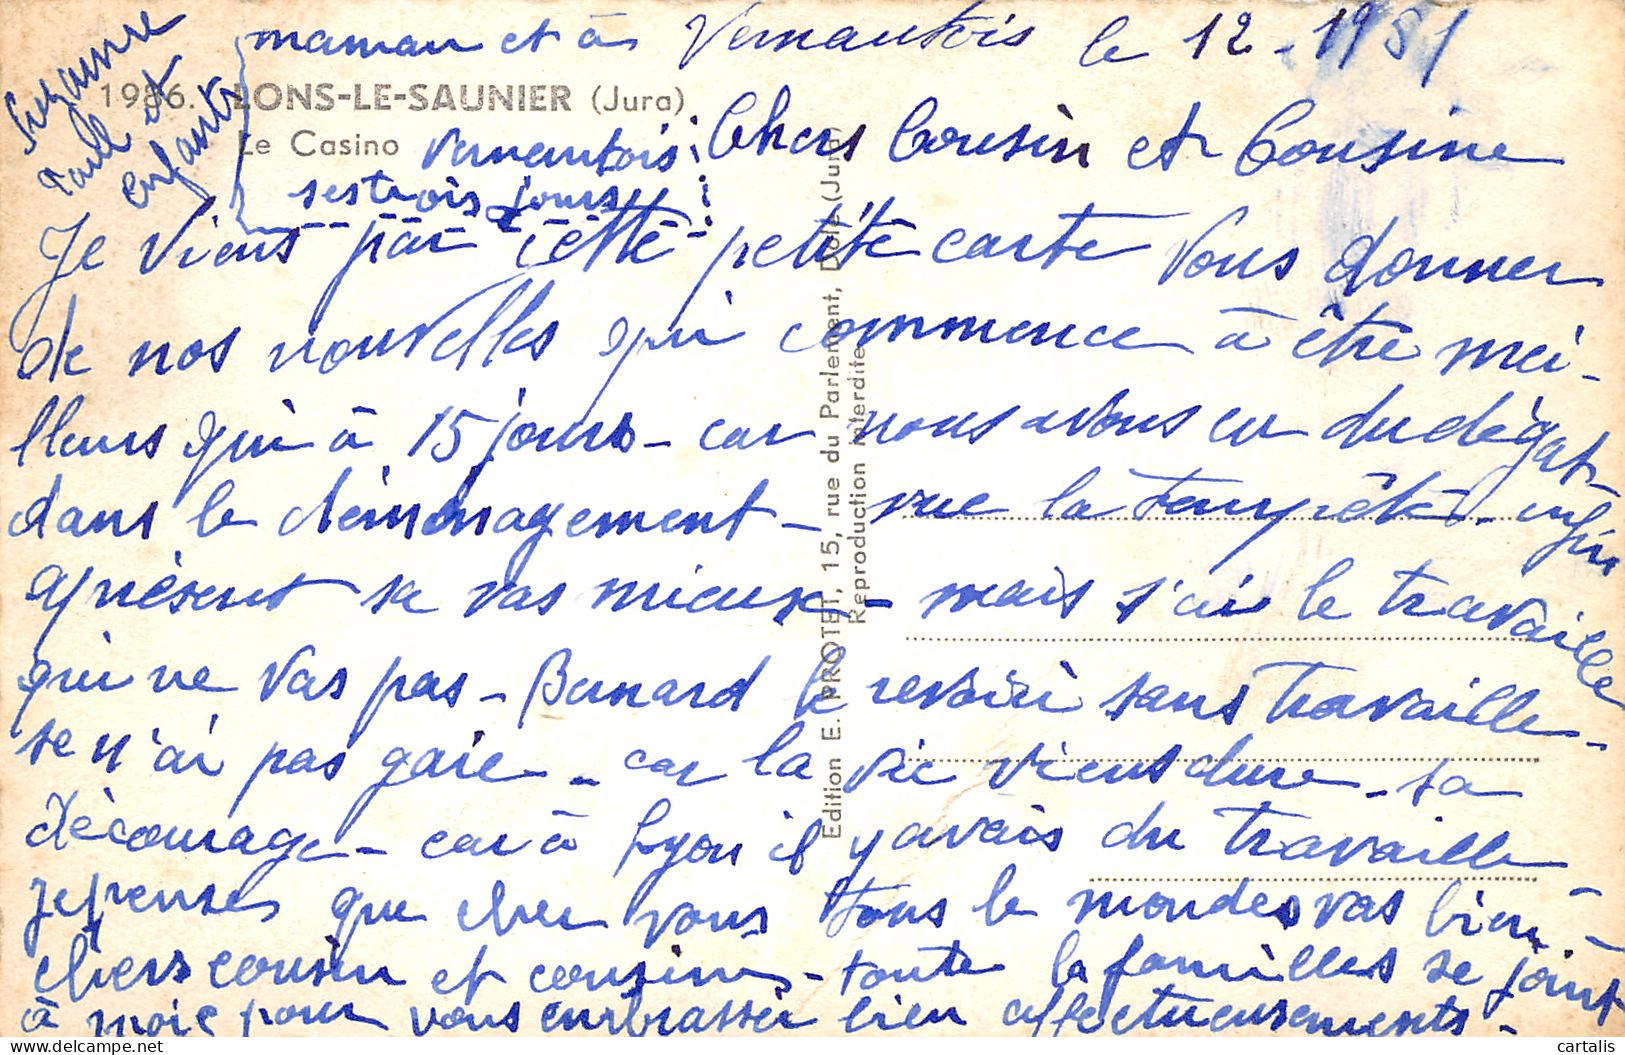 maman et à Vernantois le 12-1951
Suzanne
Paul et
enfants
1986. LONS-LE-SAUNIER (Jura)
Le Casino
Vernantois
ses trois jours
Chers Cousin et Cousine
Je viens par cette petite carte vous donner
de nos nouvelles qui commence à être mei-
lleurs qui à 15 jours - car nous avons eu du dégat -
dans le déménagement - vue la tempête - enfin
aprésent sa vas mieux - mais s'ai le travaille
qui ne vas pas - Bernard le revoici sans travaille -
se n'ai pas gaie - car la vie viens dure - sa
décourage - car à Lyon il y avais du travaille -
je penses que cher vous tous le mondes vas bien -
chers cousin et cousine - toute la familles se joint
à moie pour vous embrasser bien affectueusements -
Edition E. PROTET, 15, rue du Parlement, Dole (Jura)
Reproduction interdite
cartalis